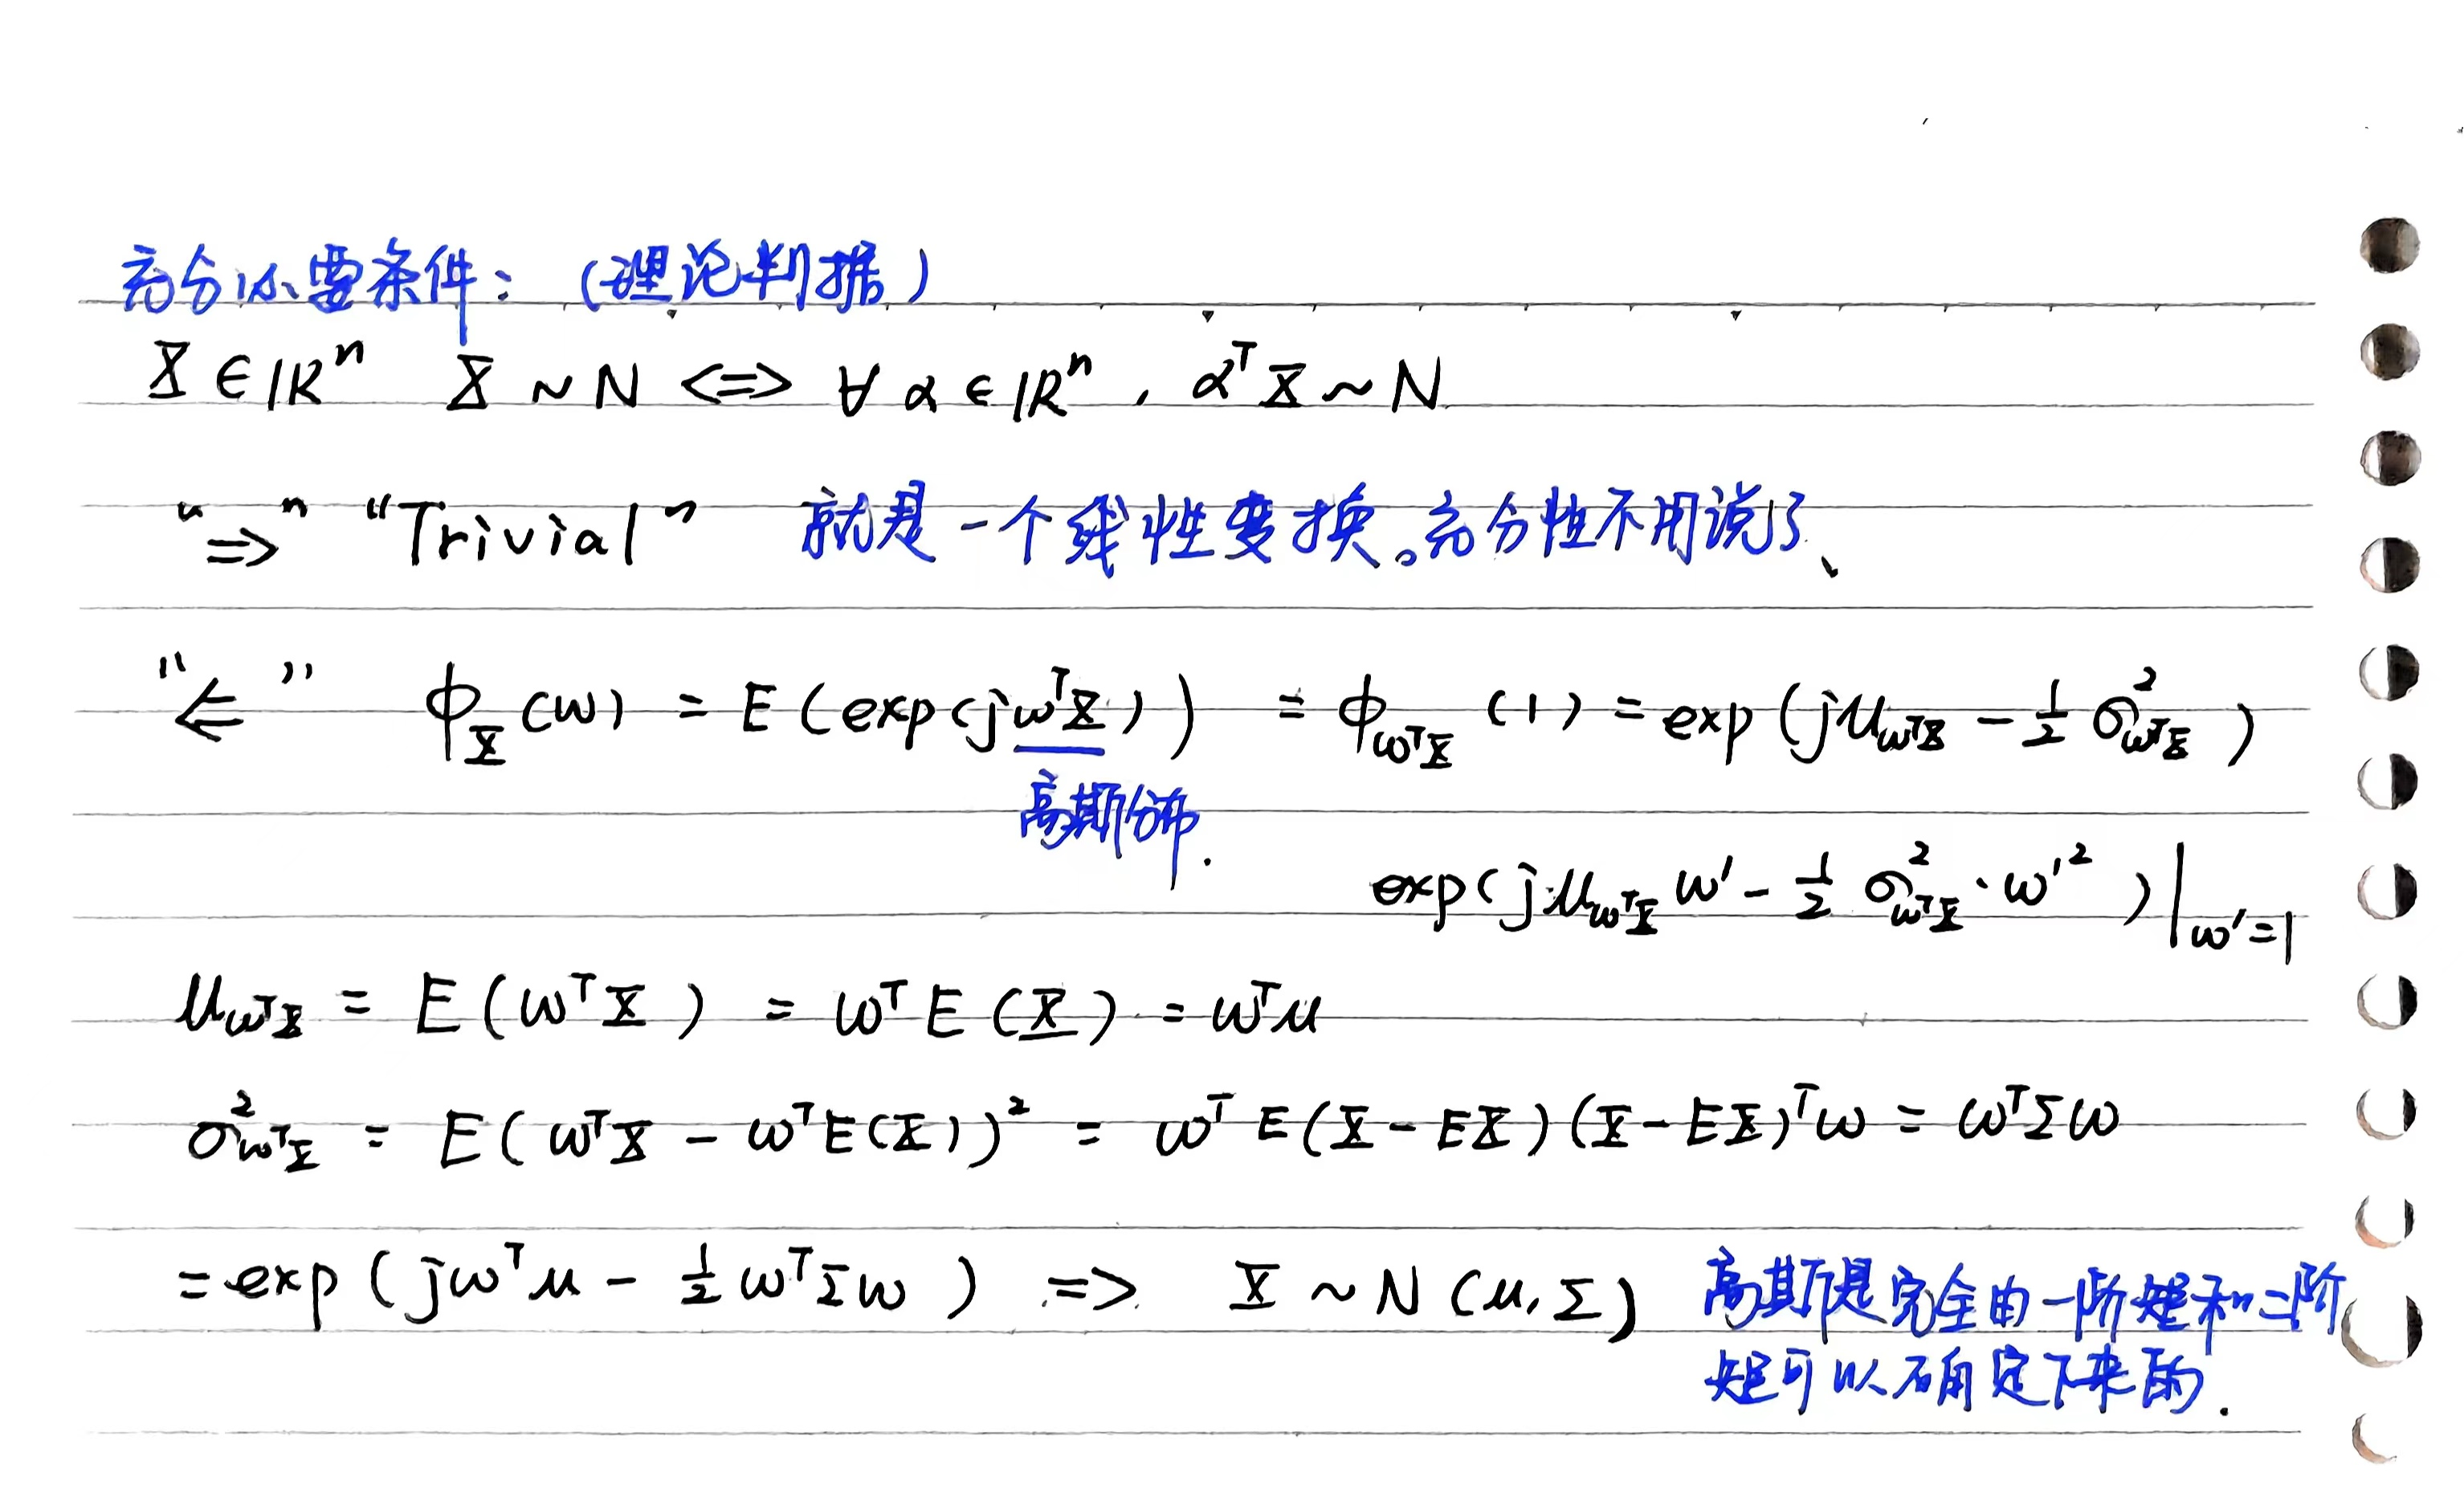 充分必要条件：（理论判据）
X ∈ ℝⁿ  X ~ N <=> ∀ α ∈ ℝⁿ , αᵀX ~ N
"⇒" "Trivial" 就是一个线性变换。充分性不用说了、
"⇐" ϕ_X(ω) = E(exp(jωᵀX)) = ϕ_{ωᵀX}(1) = exp(jμ_{ωᵀX} - ½σ²_{ωᵀX})
高斯分布.
exp(jμ_{ωᵀX}ω' - ½σ²_{ωᵀX}·ω'²)|_{ω'=1}
μ_{ωᵀX} = E(ωᵀX) = ωᵀE(X) = ωᵀμ
σ²_{ωᵀX} = E(ωᵀX - ωᵀE(X))² = ωᵀE(X-EX)(X-EX)ᵀω = ωᵀΣω
= exp(jωᵀμ - ½ωᵀΣω) => X ~ N(μ,Σ) 高斯是完全由一阶矩和二阶
矩可以确定下来的.